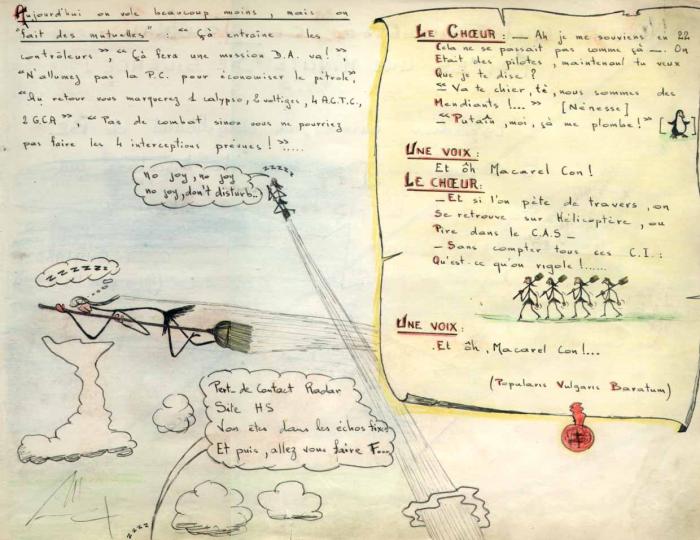 Aujourd'hui on vole beaucoup moins, mais on
"fait des mutuelles" : "Çà entraîne les
contrôleurs", "Çà fera une mission D.A. va!",
"N'allumez pas la P.C. pour économiser le pétrole",
"Au retour vous marquerez 1 calypso, 2 voltiges, 4 A.C.T.C.,
2 G.C.A", "Pas de combat sinon vous ne pourriez
pas faire les 4 interceptions prévues!".....
No joy, no joy
no joy, don't disturb..
zzzzz
zzzzzz
Pert. de Contact Radar
Site HS
Vous êtes dans les échos fixes
Et puis, allez vous faire F....
zzzz
LE CHŒUR : — Ah je me souviens en 22
Cela ne se passait pas comme çà —. On
Etait des pilotes, maintenant tu veux
Que je te dise ?
"Va te chier, té, nous sommes des
Mendiants !..." [Nénesse]
"Putaîn, moi, çà me plombe!" [ ]
UNE VOIX :
Et ôh Macarel Con !
LE CHŒUR :
— Et si l'on pète de travers, on
Se retrouve sur Hélicoptère, ou
Pire dans le C.A.S —
— Sans compter tous ces C.I. :
Qu'est-ce qu'on rigole !......
UNE VOIX :
.Et ôh, Macarel Con !...
(Popularis Vulgaris Baratum)